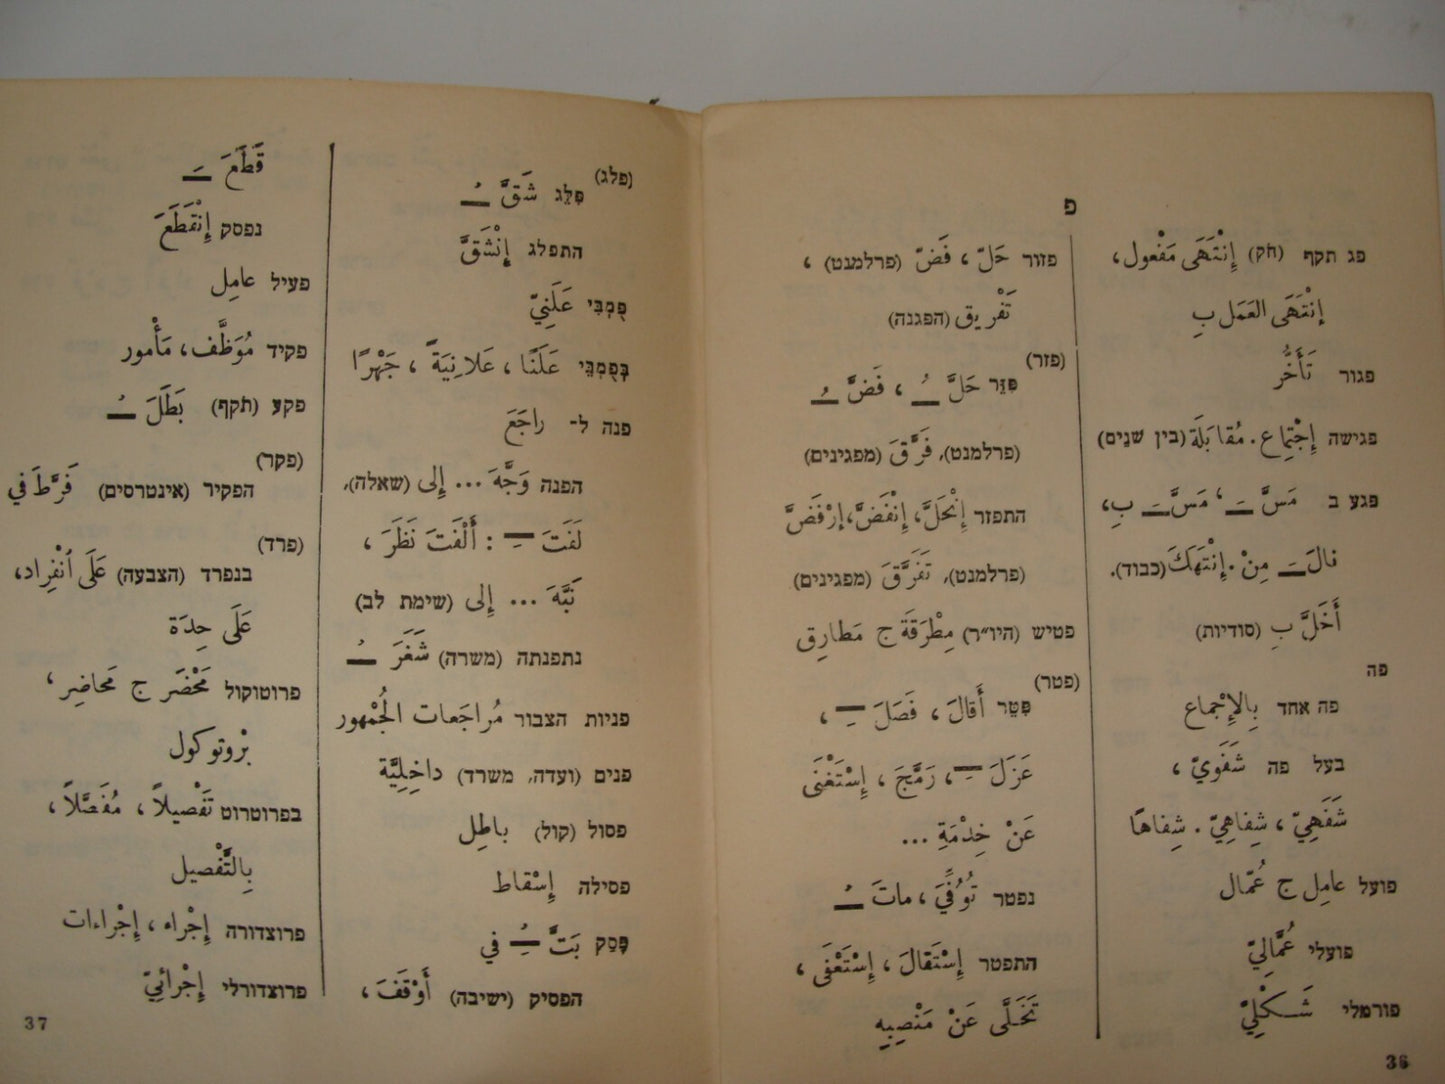 פ
פג תקף (חק) إِنْتَهَى مَفْعول،
إِنْتَهَى العَمَل بِ
פגור تَأَخُّر
פגישה إِجْتِماع. مُقابَلَة (בין שנים)
פגע ב مَسَّ ــَـ ، مَسَّ ــَـ بِ،
نالَ ــَـ مِنْ. إِنْتَهَكَ (כבוד).
أَخَلَّ بِ (סודיות)
פה
פה אחד بِالإِجْماع
בעל פה شَفَوِيّ ،
شَفَهِيّ ، شِفاهِيّ . شِفاهًا
פועל عامِل ج عُمّال
פועלי عُمَّالِيّ
פורמלי شَكْلِيّ
פזור حَلّ ، فَضّ (פרלמנט) ،
تَفْريق (הפגנה)
(פזר)
פִּזֵּר حَلَّ ــُـ ، فَضَّ ــُـ
(פרלמנט), فَرَّقَ (מפגינים)
התפזר إِنْحَلَّ، إِنْفَضَّ، إِرْفَضَّ
(פרלמנט), تَفَرَّقَ (מפגינים)
פטיש (היו״ר) مِطْرَقَة ج مَطارِق
(פטר)
פִּטֵּר أَقالَ ، فَصَلَ ــِـ ،
عَزَلَ ــِـ ، رَمَّجَ ، إِسْتَغْنَى
عَنْ خِدْمَةِ ...
נפטר تُوُفِّيَ ، ماتَ ــُـ
התפטר إِسْتَقالَ ، إِسْتَعْفَى ،
تَخَلَّى عَنْ مَنْصِبِهِ
36
(פלג)
פִּלֵּג شَقَّ ــُـ
התפלג إِنْشَقَّ
פֻּמְבִּי عَلَنِيّ
בְּפֻמְבֵּי عَلَنًا ، عَلانِيَةً ، جَهْرًا
פנה ל־ راجَعَ
הפנה وَجَّهَ ... إِلى (שאלה),
لَفَتَ ــِـ : أَلْفَتَ نَظَرَ ،
نَبَّهَ ... إِلى (שימת לב)
נתפנתה (משרה) شَغَرَ ــُـ
פניות הצבור مُراجَعات الجُمْهور
פנים (ועדה, משרד) داخِلِيَّة
פסול (קול) باطِل
פסילה إِسْقاط
פָּסַק بَتَّ ــُِـ في
הפסיק (ישיבה) أَوْقَفَ ،
قَطَعَ ــَـ
נפסק إِنْقَطَعَ
פעיל عامِل
פקיד مُوَظَّف، مَأْمور
פקע (תקף) بَطَلَ ــُـ
(פקר)
הפקיר (אינטרסים) فَرَّطَ في
(פרד)
בנפרד (הצבעה) عَلَى ٱنْفِراد،
عَلَى حِدَة
פרוטוקול مَحْضَر ج مَحاضِر ،
بْروتوكول
בפרוטרוט تَفْصيلاً ، مُفَصَّلاً ،
بِالتَّفْصيل
פרוצדורה إِجْراء ، إِجْراءات
פרוצדורלי إِجْرائِيّ
37